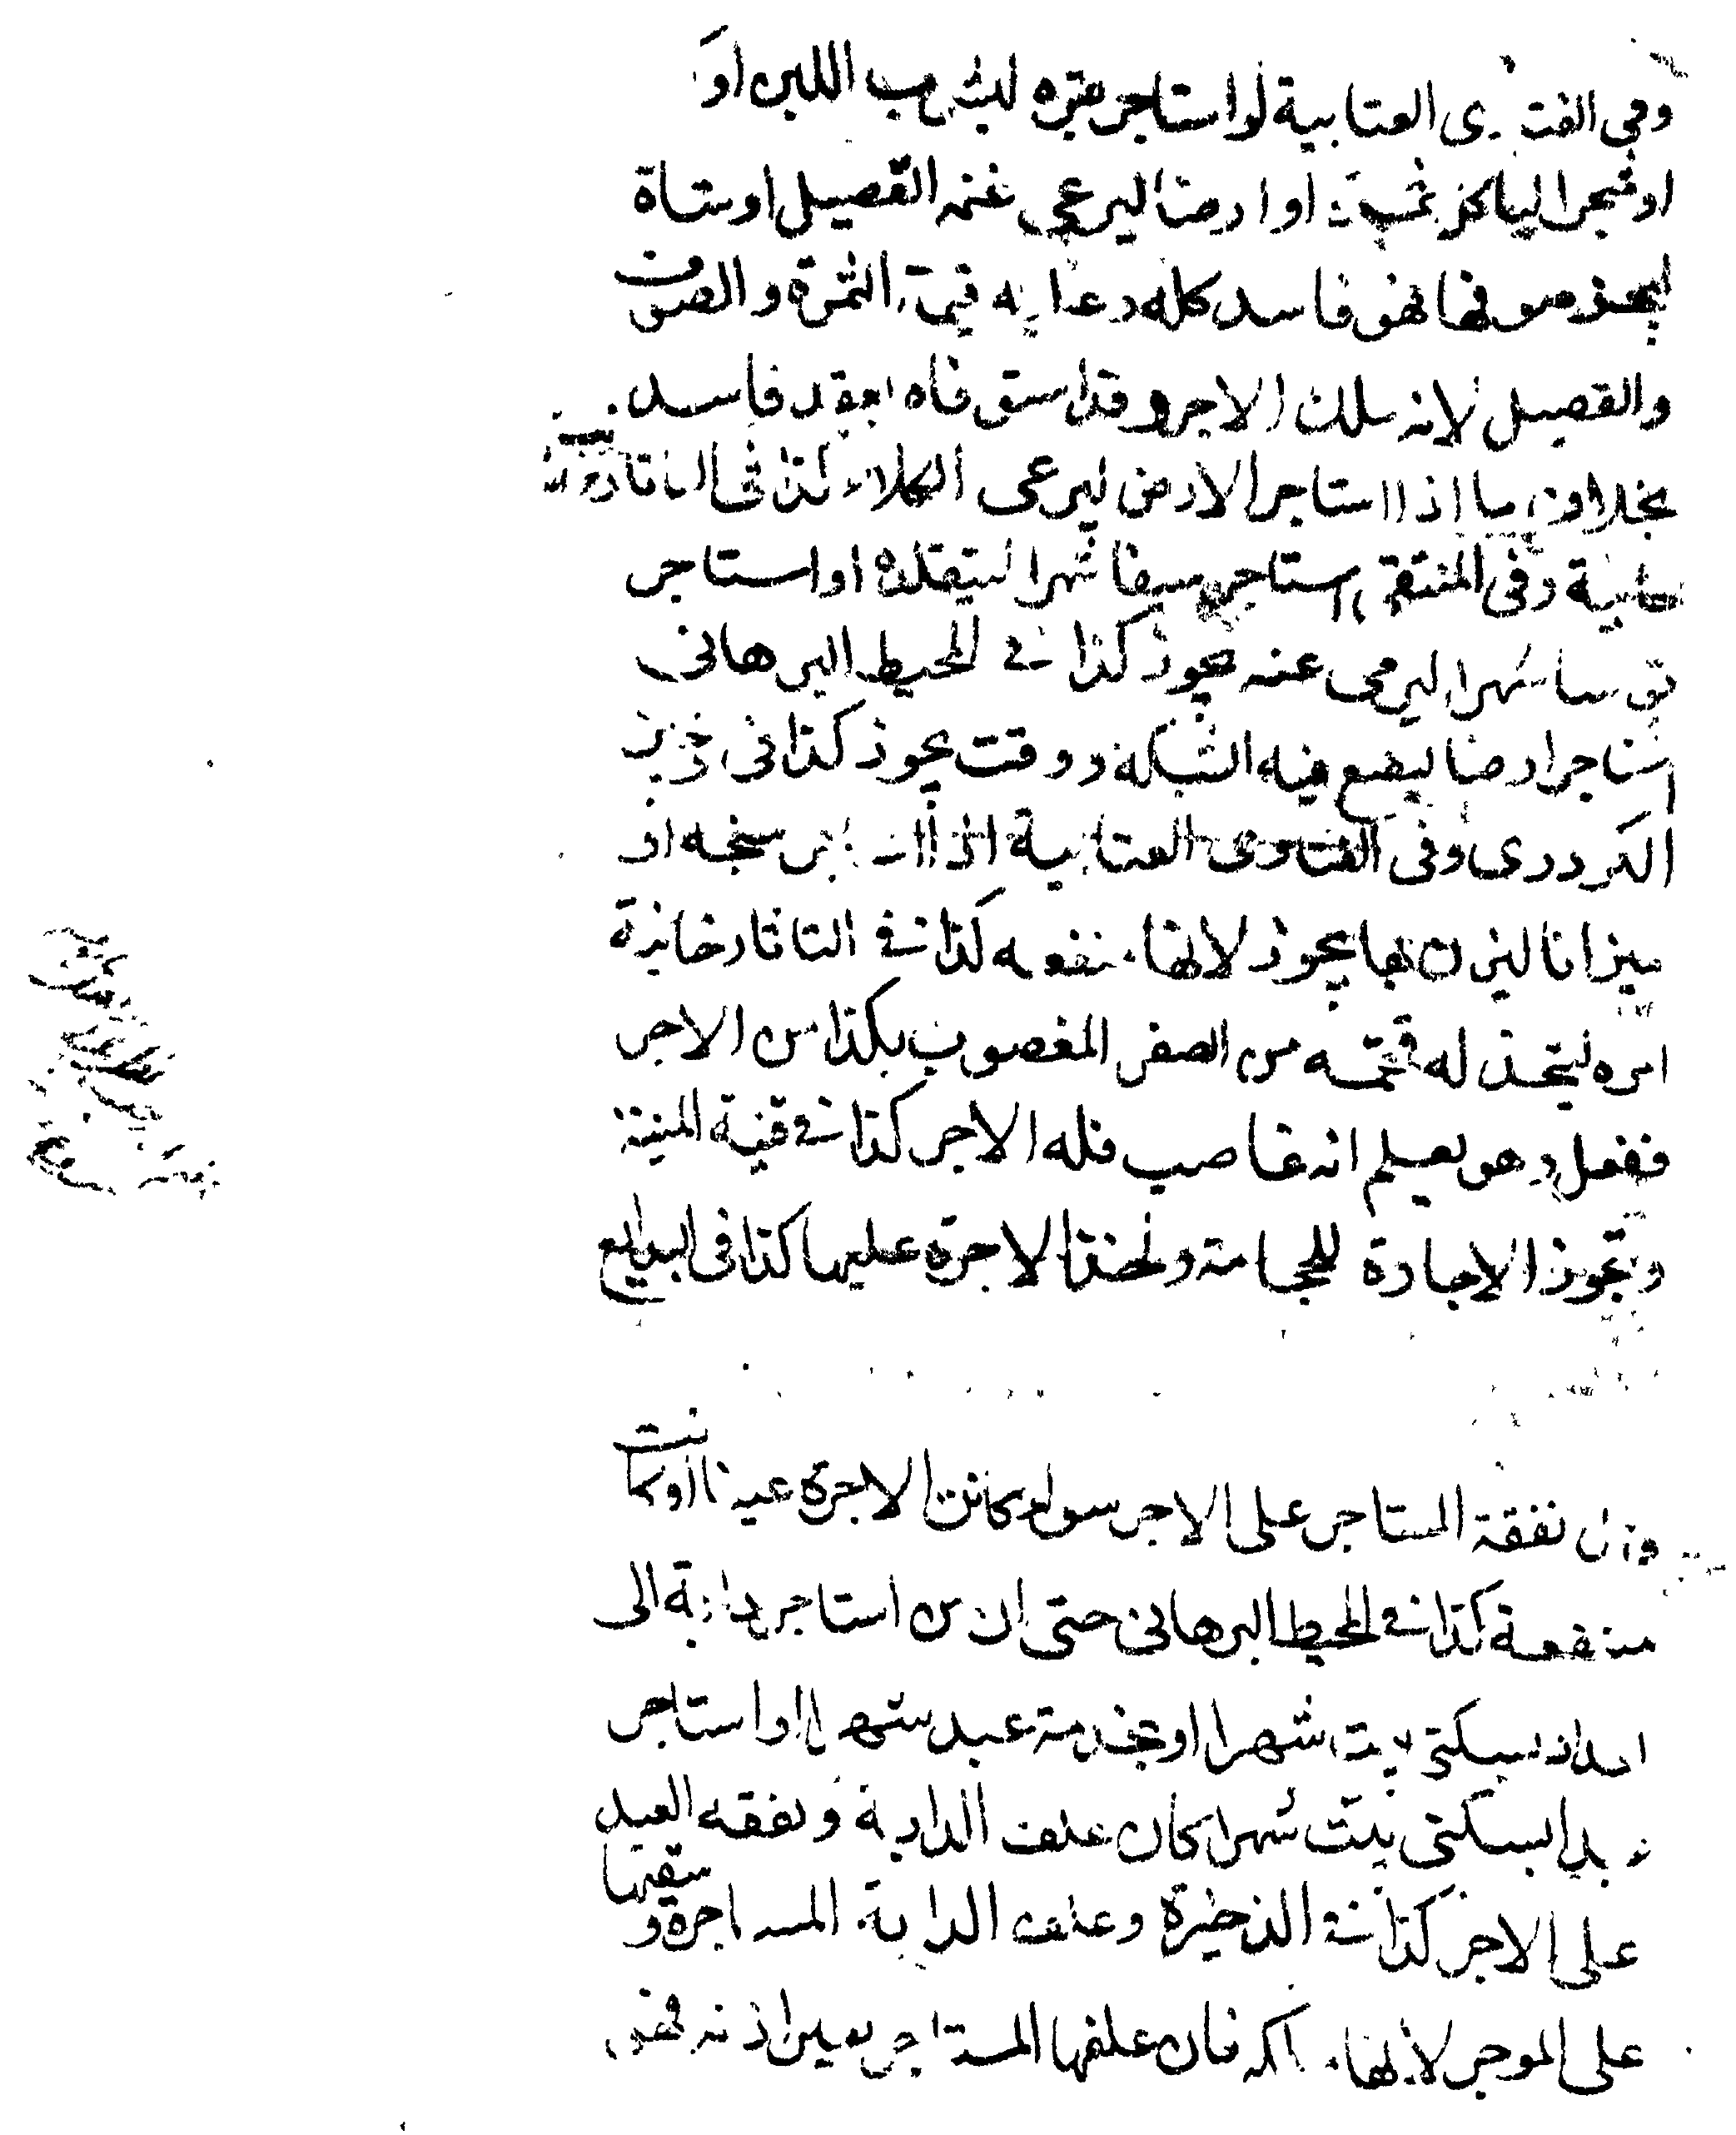 وفي الفتاوى العتابية لو استاجر بقرة ليشرب اللبن او
او شجرا لياكل ثمرته او ارضا ليرعى غنمه القصيل او شاة
ليجز صوفها فهو فاسد كله وعليه قيمة الثمرة والصوف
والقصيل لانه ملك الاجر وقد استوفاه بعقد فاسد
بخلاف ما اذا استاجر الارض ليرعى الكلاء كذا في التاتارخا
نية وفي المنتقى استاجر سيفا شهرا ليتقلده او استاجر
قوسا شهرا ليرمى عنه يجوز كذا في المحيط البرهاني
استاجر ارضا ليضع فيه الشبكة ووقت يجوز كذا في وجيز
الكردرى وفي الفتاوى العتابية اذا استاجر سنجه او
ميزانا ليزن بها يجوز لانها منفعه كذا في التاتارخانية
امره ليتخذ له قمقمه من الصفر المغصوب بكذا من الاجر
ففعل وهو يعلم انه غاصب فله الاجر كذا في قنية المنية
وتجوز الاجارة للحجامة ولخذ الاجرة عليها كذا في البدايع
وان نفقة المستاجر على الاجر سواء كانت الاجرة عينا او كانت
منفعة كذا في المحيط البرهاني حتى ان من استاجر دابة الى
بسكنى بيت شهرا او بخدمة عبد شهرا او استاجر
بسكنى بيت شهرا كان علف الدابة ونفقه العبد
على الاجر كذا في الذخيرة وعلف الدابة المستاجرة وسقيها
على الموجر لانها ملكه فان علفها المستاجر بغير اذنه فهو